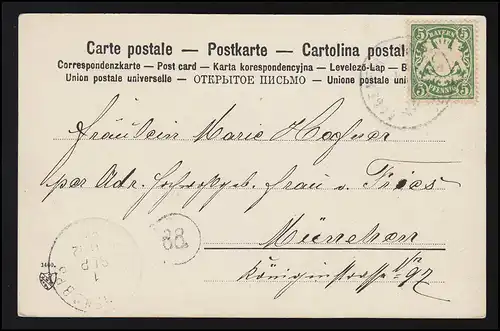 Carte postale — Postkarte — Cartolina postal
Correspondenzkarte — Post card — Karta korespondencyjna — Levelező-Lap — B
Union postale universelle — ОТКРЫТОЕ ПИСЬМО — Unione postale uni
BAYERN
5 5
5 5
PFENNIG
Fräulein Marie Hafner
per Adr. Frau v. Fries
München
88
Königinstrasse 97